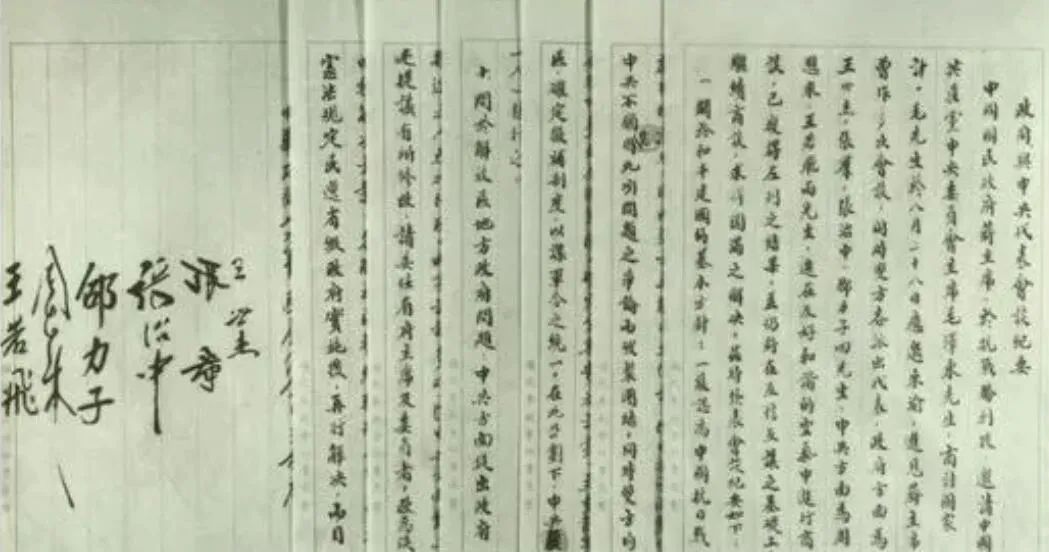 政府與中共代表會談紀要
中國國民政府蔣主席，於抗戰勝利後，邀請中國
共產黨中央委員會主席毛澤東先生，商討國家
計，毛先生於八月二十八日應邀來渝，進見蔣主席
曾作多次會談，同時雙方各派出代表，政府方面為
王世杰、張羣、張治中、邵力子四先生，中共方面為周
恩來、王若飛兩先生，迭在友好和諧的空氣中進行商
談，已獲得左列之結果，並仍將在互信互讓之基礎上
繼續商談，求得圓滿之解決。茲特發表會談紀要如下
一關於和平建國的基本方針：一致認為中國抗日戰
中共不願因此項問題之爭論而破裂團結，同時雙方均
區，確定徵補制度，以謀軍令之統一。在此計劃下，中共
十關於解放區地方政府問題，中共方面提出政府
提議有所修改，請委任省府主席及委員者，
憲法規定民選省級政府實施後，再行解決，而目
王世杰
張羣
張治中
邵力子
周恩來
王若飛